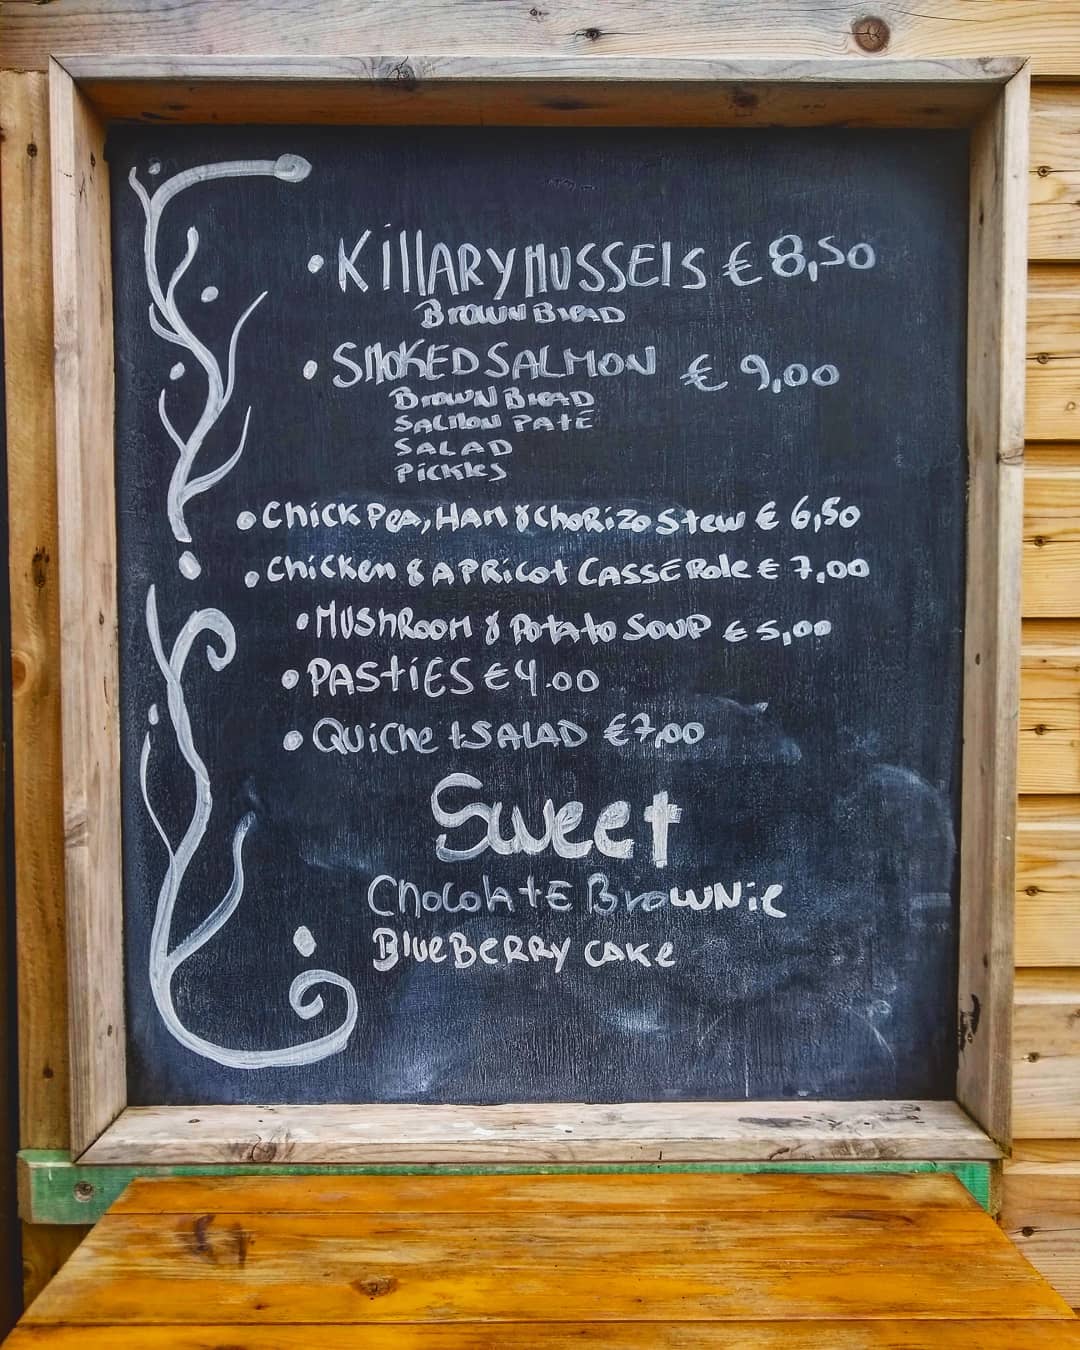 • KillARY MUSSElS € 8,50
BROWN BREAD
• SMOKED SALMON € 9,00
BROWN BREAD
SALMON PATÉ
SALAD
PICKlES
• CHICK PEA, HAM & CHORIZO STEW € 6,50
• CHICKEN & APRICOT CASSEROLE € 7,00
• MUSHROOM & POTATO SOUP € 5,00
• PASTIES € 4.00
• QUICHE + SALAD € 7,00
Sweet
CHOCOLATE BROWNIE
BLUEBERRY CAKE